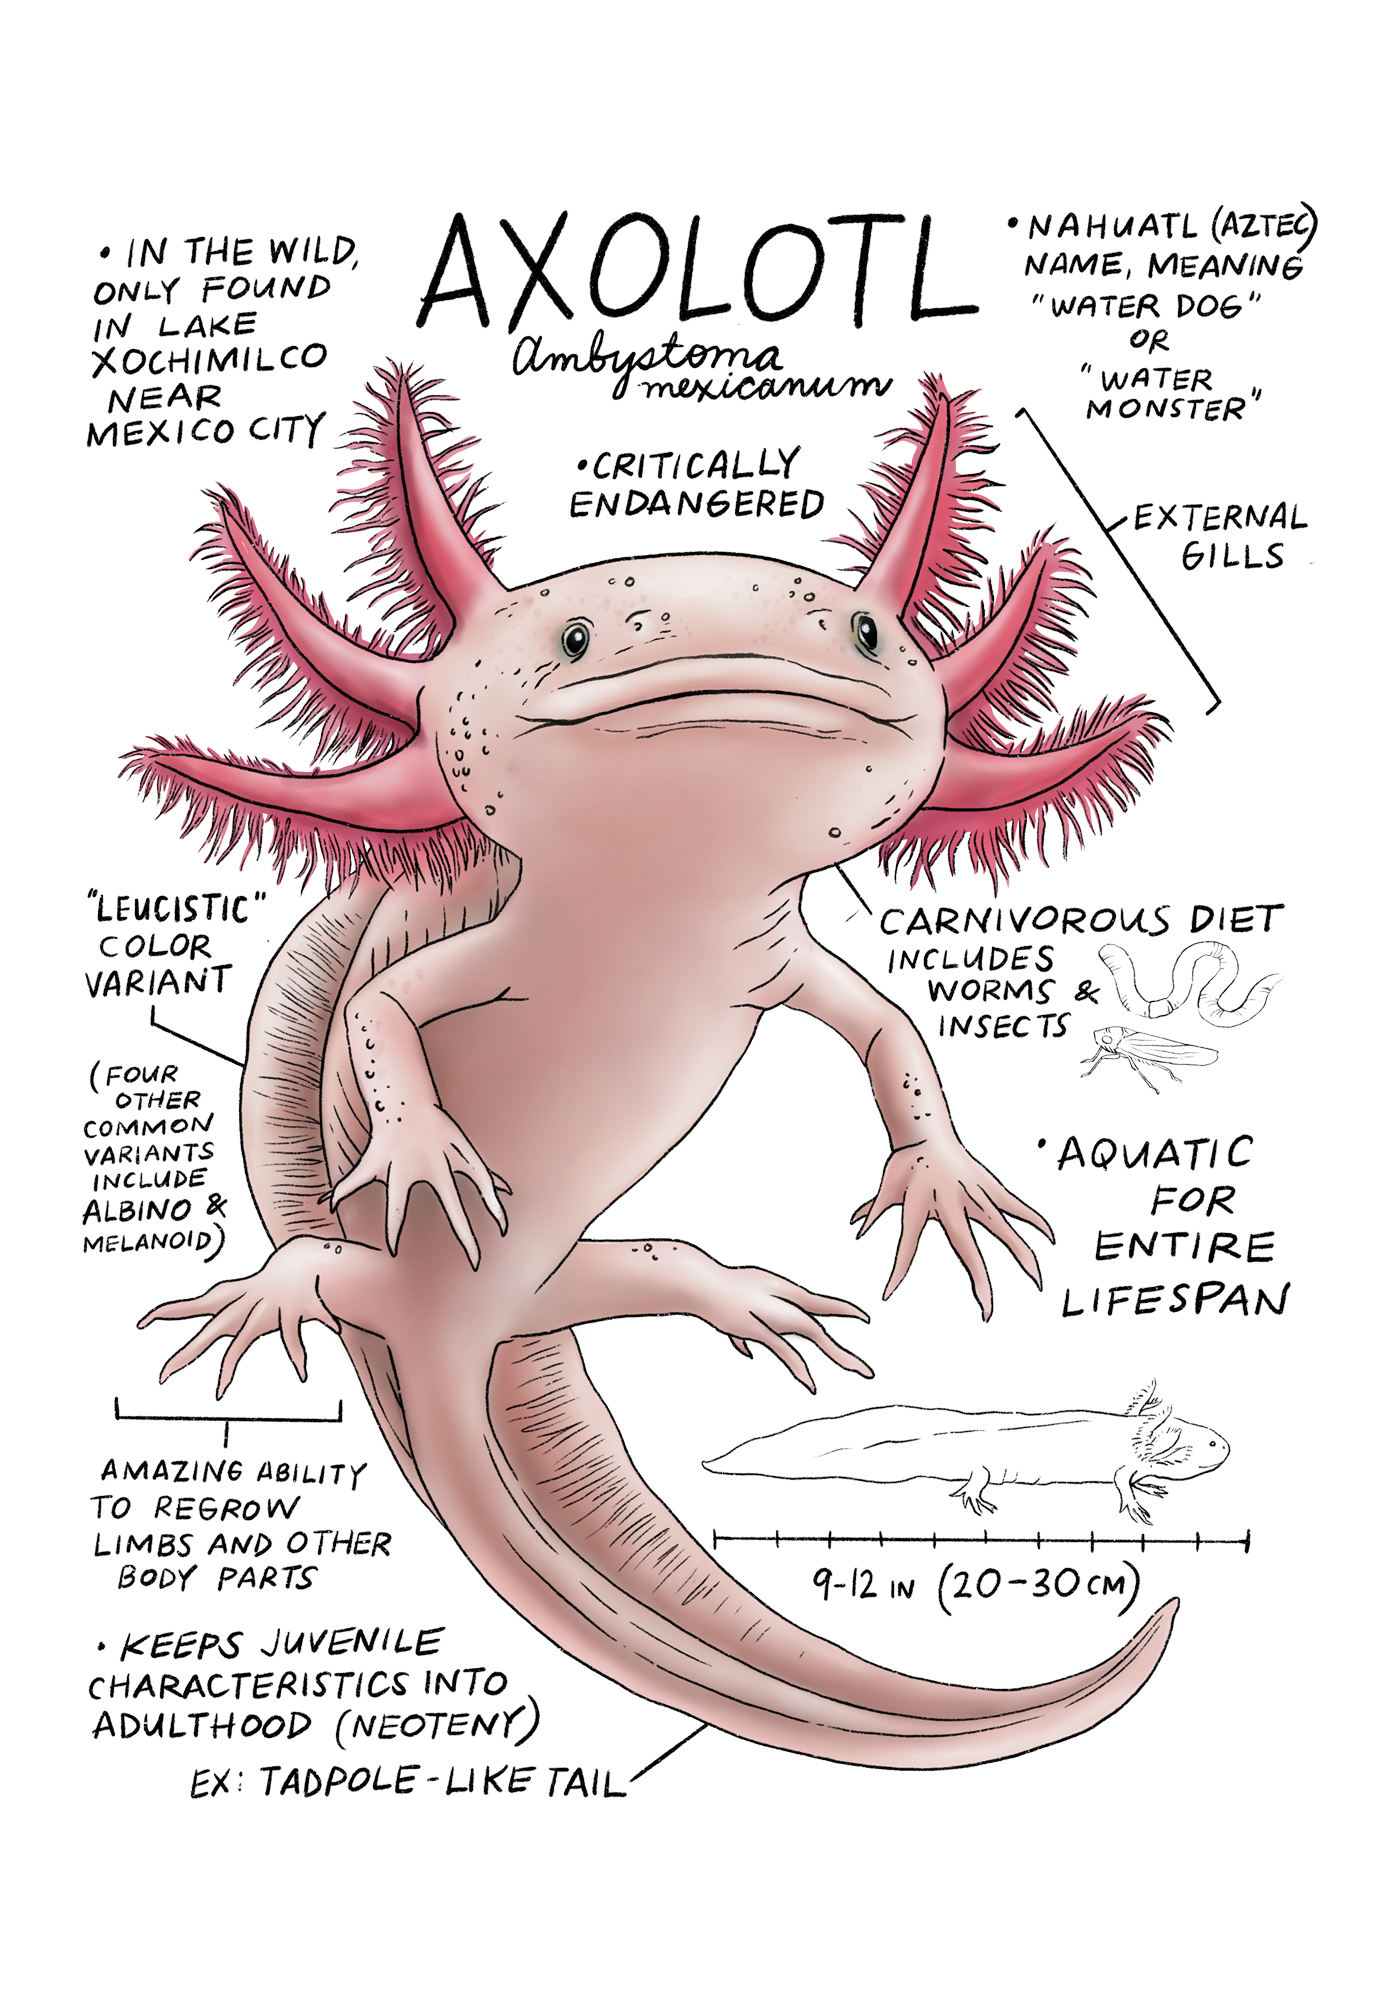 AXOLOTL
Ambystoma
mexicanum
• IN THE WILD,
ONLY FOUND
IN LAKE
XOCHIMILCO
NEAR
MEXICO CITY
• NAHUATL (AZTEC)
NAME, MEANING
"WATER DOG"
OR
"WATER
MONSTER"
• CRITICALLY
ENDANGERED
EXTERNAL
GILLS
"LEUCISTIC"
COLOR
VARIANT
(FOUR
OTHER
COMMON
VARIANTS
INCLUDE
ALBINO &
MELANOID)
CARNIVOROUS DIET
INCLUDES
WORMS &
INSECTS
• AQUATIC
FOR
ENTIRE
LIFESPAN
AMAZING ABILITY
TO REGROW
LIMBS AND OTHER
BODY PARTS
9-12 IN (20-30 CM)
• KEEPS JUVENILE
CHARACTERISTICS INTO
ADULTHOOD (NEOTENY)
EX: TADPOLE-LIKE TAIL